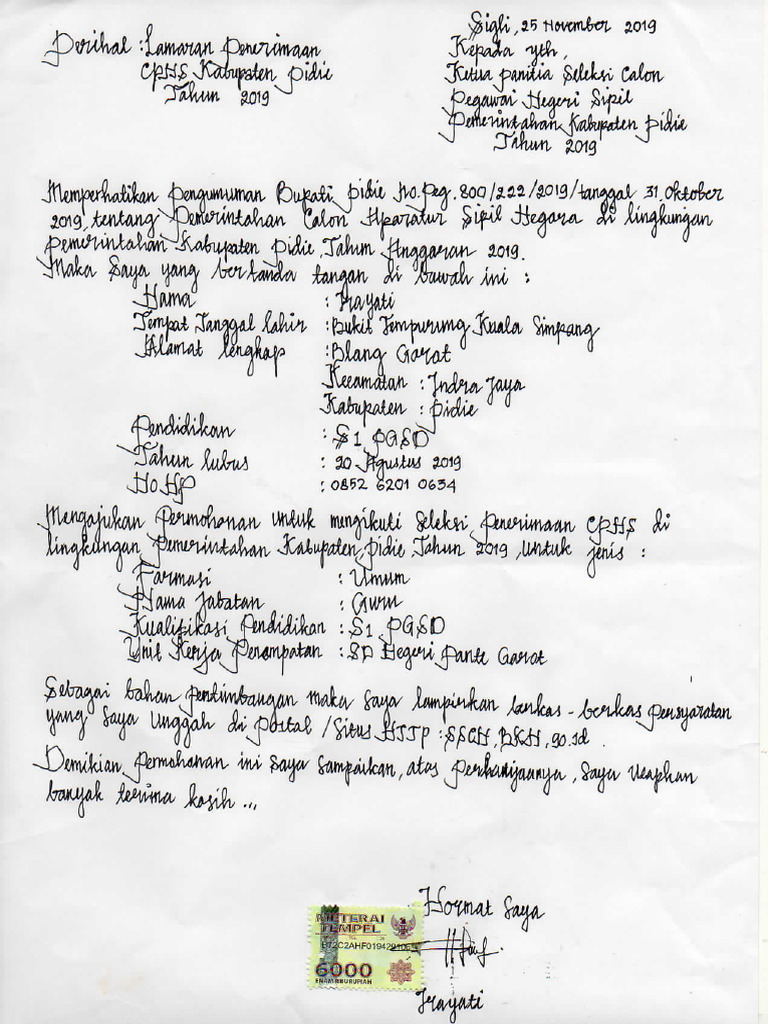 Sigli, 25 November 2019
Perihal : Lamaran Penerimaan
CPNS Kabupaten Pidie
Tahun 2019
Kepada yth,
Ketua Panitia Seleksi Calon
Pegawai Negeri Sipil
Pemerintahan Kabupaten Pidie
Tahun 2019
Memperhatikan Pengumuman Bupati Pidie No.Peg. 800/222/2019/tanggal 31 Oktober
2019, tentang Pemerintahan Calon Aparatur Sipil Negara di lingkungan
Pemerintahan Kabupaten Pidie, Tahun Anggaran 2019.
Maka Saya yang bertanda tangan di bawah ini :
Nama : Irayati
Tempat Tanggal lahir : Bukit Tempurung Kuala Simpang
Alamat lengkap : Blang Garot
Kecamatan : Indra Jaya
Kabupaten : Pidie
Pendidikan : S1 PGSD
Tahun lulus : 20 Agustus 2019
No HP : 0852 6201 0634
Mengajukan Permohonan untuk mengikuti Seleksi Penerimaan CPNS di
lingkungan Pemerintahan Kabupaten Pidie Tahun 2019, untuk jenis :
Farmasi : Umum
Nama Jabatan : Guru
Kualifikasi Pendidikan : S1 PGSD
Unit Kerja Penempatan : SD Negeri Pante Garot
Sebagai bahan Pertimbangan maka Saya lampirkan berkas-berkas Persyaratan
yang Saya Unggah di Portal / Situs HTTP : SSCN, BKN, go.id
Demikian Permohonan ini Saya Sampaikan, atas Perhatiannya, Saya Ucapkan
banyak terima kasih ...
Hormat Saya
METERAI
TEMPEL
6000
ENAM RIBU RUPIAH
Irayati